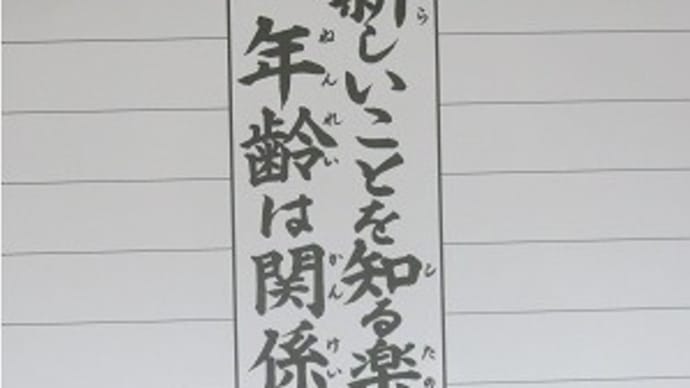 新しいことを知る楽
年齢は関係